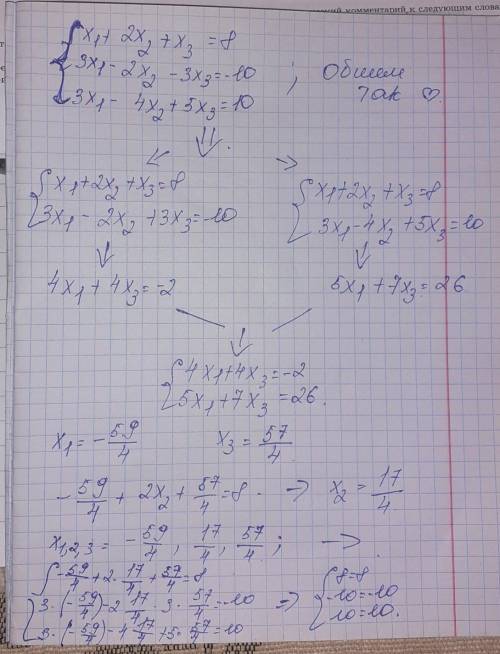 ний комментарий к следующим слова
{ x₁ + 2x₂ + x₃ = 8
3x₁ - 2x₂ - 3x₃ = -10 ; Общем
3x₁ - 4x₂ + 5x₃ = 10 так ♡.
⇓.
↙ →
{ x₁ + 2x₂ + x₃ = 8 { x₁ + 2x₂ + x₃ = 8
3x₁ - 2x₂ + 3x₃ = -10 3x₁ - 4x₂ + 5x₃ = 10
↓ ↓
4x₁ + 4x₃ = -2 5x₁ + 7x₃ = 26
↓
{ 4x₁ + 4x₃ = -2
5x₁ + 7x₃ = 26.
x₁ = -59/4 x₃ = 57/4
-59/4 + 2x₂ + 57/4 = 8. → x₂ = 17/4
x₁,₂,₃ = -59/4, 17/4, 57/4; →
{ -59/4 + 2·17/4 + 57/4 = 8 { 8 = 8
3·(-59/4) - 2 17/4 · 3·57/4 = -10 ⇒ -10 = -10
3·(-59/4) - 4 17/4 + 5·57/4 = 10 10 = 10.